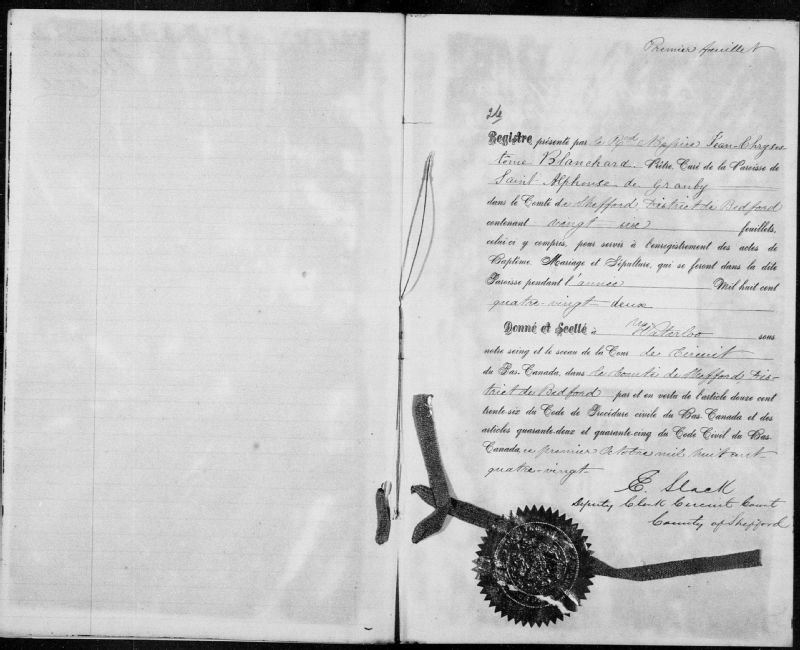 Premier feuillet
Registre présenté par le Rvd Messire Jean-Chrysos
tôme Blanchard, Prêtre, Curé de la Paroisse de
Saint Alphonse de Granby
dans le Comté de Shefford District de Bedford
contenant vingt six feuillets,
celui-ci y compris, pour servir à l'enregistrement des actes de
Baptême, Mariage et Sépulture, qui se feront dans la dite
Paroisse pendant l'année Mil huit cent
quatre-vingt-deux
Donné et Scellé à Waterloo sous
notre seing et le sceau de la Cour de Circuit
du Bas-Canada, dans le Comté de Shefford, Dis-
trict de Bedford par et en vertu de l'article douze cent
trente-six du Code de Procédure civile du Bas-Canada et des
articles quarante-deux et quarante-cinq du Code Civil du Bas-
Canada, ce premier Octobre mil huit cent
quatre-vingt
E. Slack
Deputy Clerk Circuit Court
County of Shefford